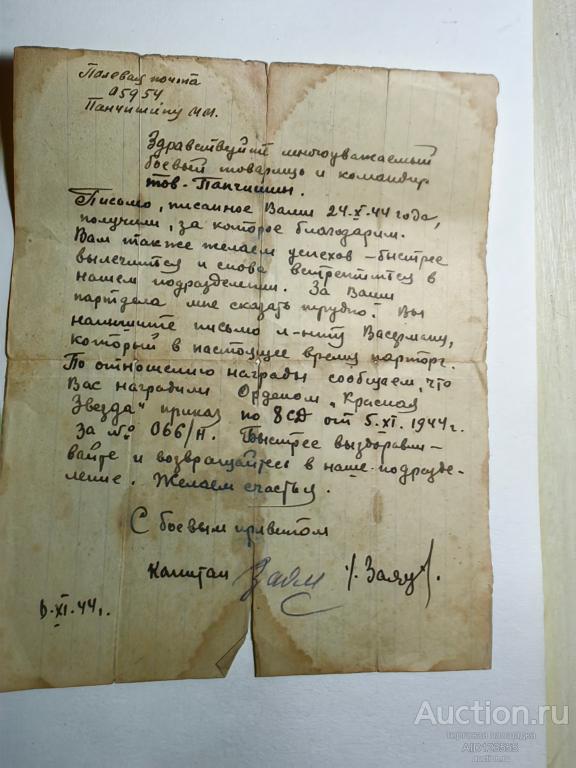 Полевая почта
05954
Панчишину М.И.
Здравствуйте многоуважаемый
боевый товарищь и командир
тов. Панчишин.
Письмо, писанное Вами 24.X.44 года,
получили, за которое благодарим.
Вам также желаем успехов - быстрее
вылечится и снова встретится в
нашем подразделении. За Ваши
партдела мне сказать трудно. Вы
напишите письмо л-нту Васерману,
который в настоящее время парторг.
По отношению награды сообщаем, что
Вас наградили Орденом „Красная
Звезда" приказ по 8СД от 5.XI.1944г.
За № 066/н. Быстрее выздоравли-
вайте и возвращайтесь в наше подразде-
ление. Желаем счастья.
С боевым приветом
Капитан /Заяц/.
6.XI.44г.
Auction.ru
торговая площадка
auction.ru